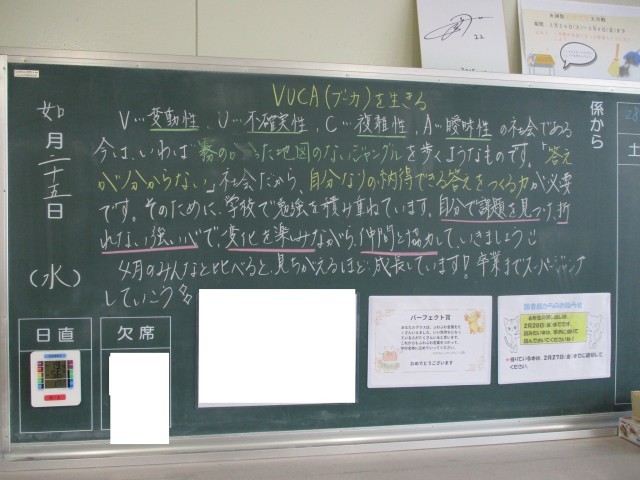 VUCA(ブーカ)を生きる
V…変動性、U…不確実性、C…複雑性、A…曖昧性の社会である
今は、いわば「霧のかかった地図のないジャングルを歩くようなものです。「答え
が分からない」社会だから、自分なりの納得できる答えをつくる力が必要
です。そのために、学校で勉強を積み重ねています。自分で課題を見つけ、折
れない強い心で、変化を楽しみながら、仲間と協力していきましょう
4月のみんなと比べると、見ちがえるほど成長しています!卒業まで
していこう
如月二十五日
(水)
日直
欠席
係から
土
28
22
パーフェクト賞
おめでとうございます
2月27日(金)までに返却して
ください。